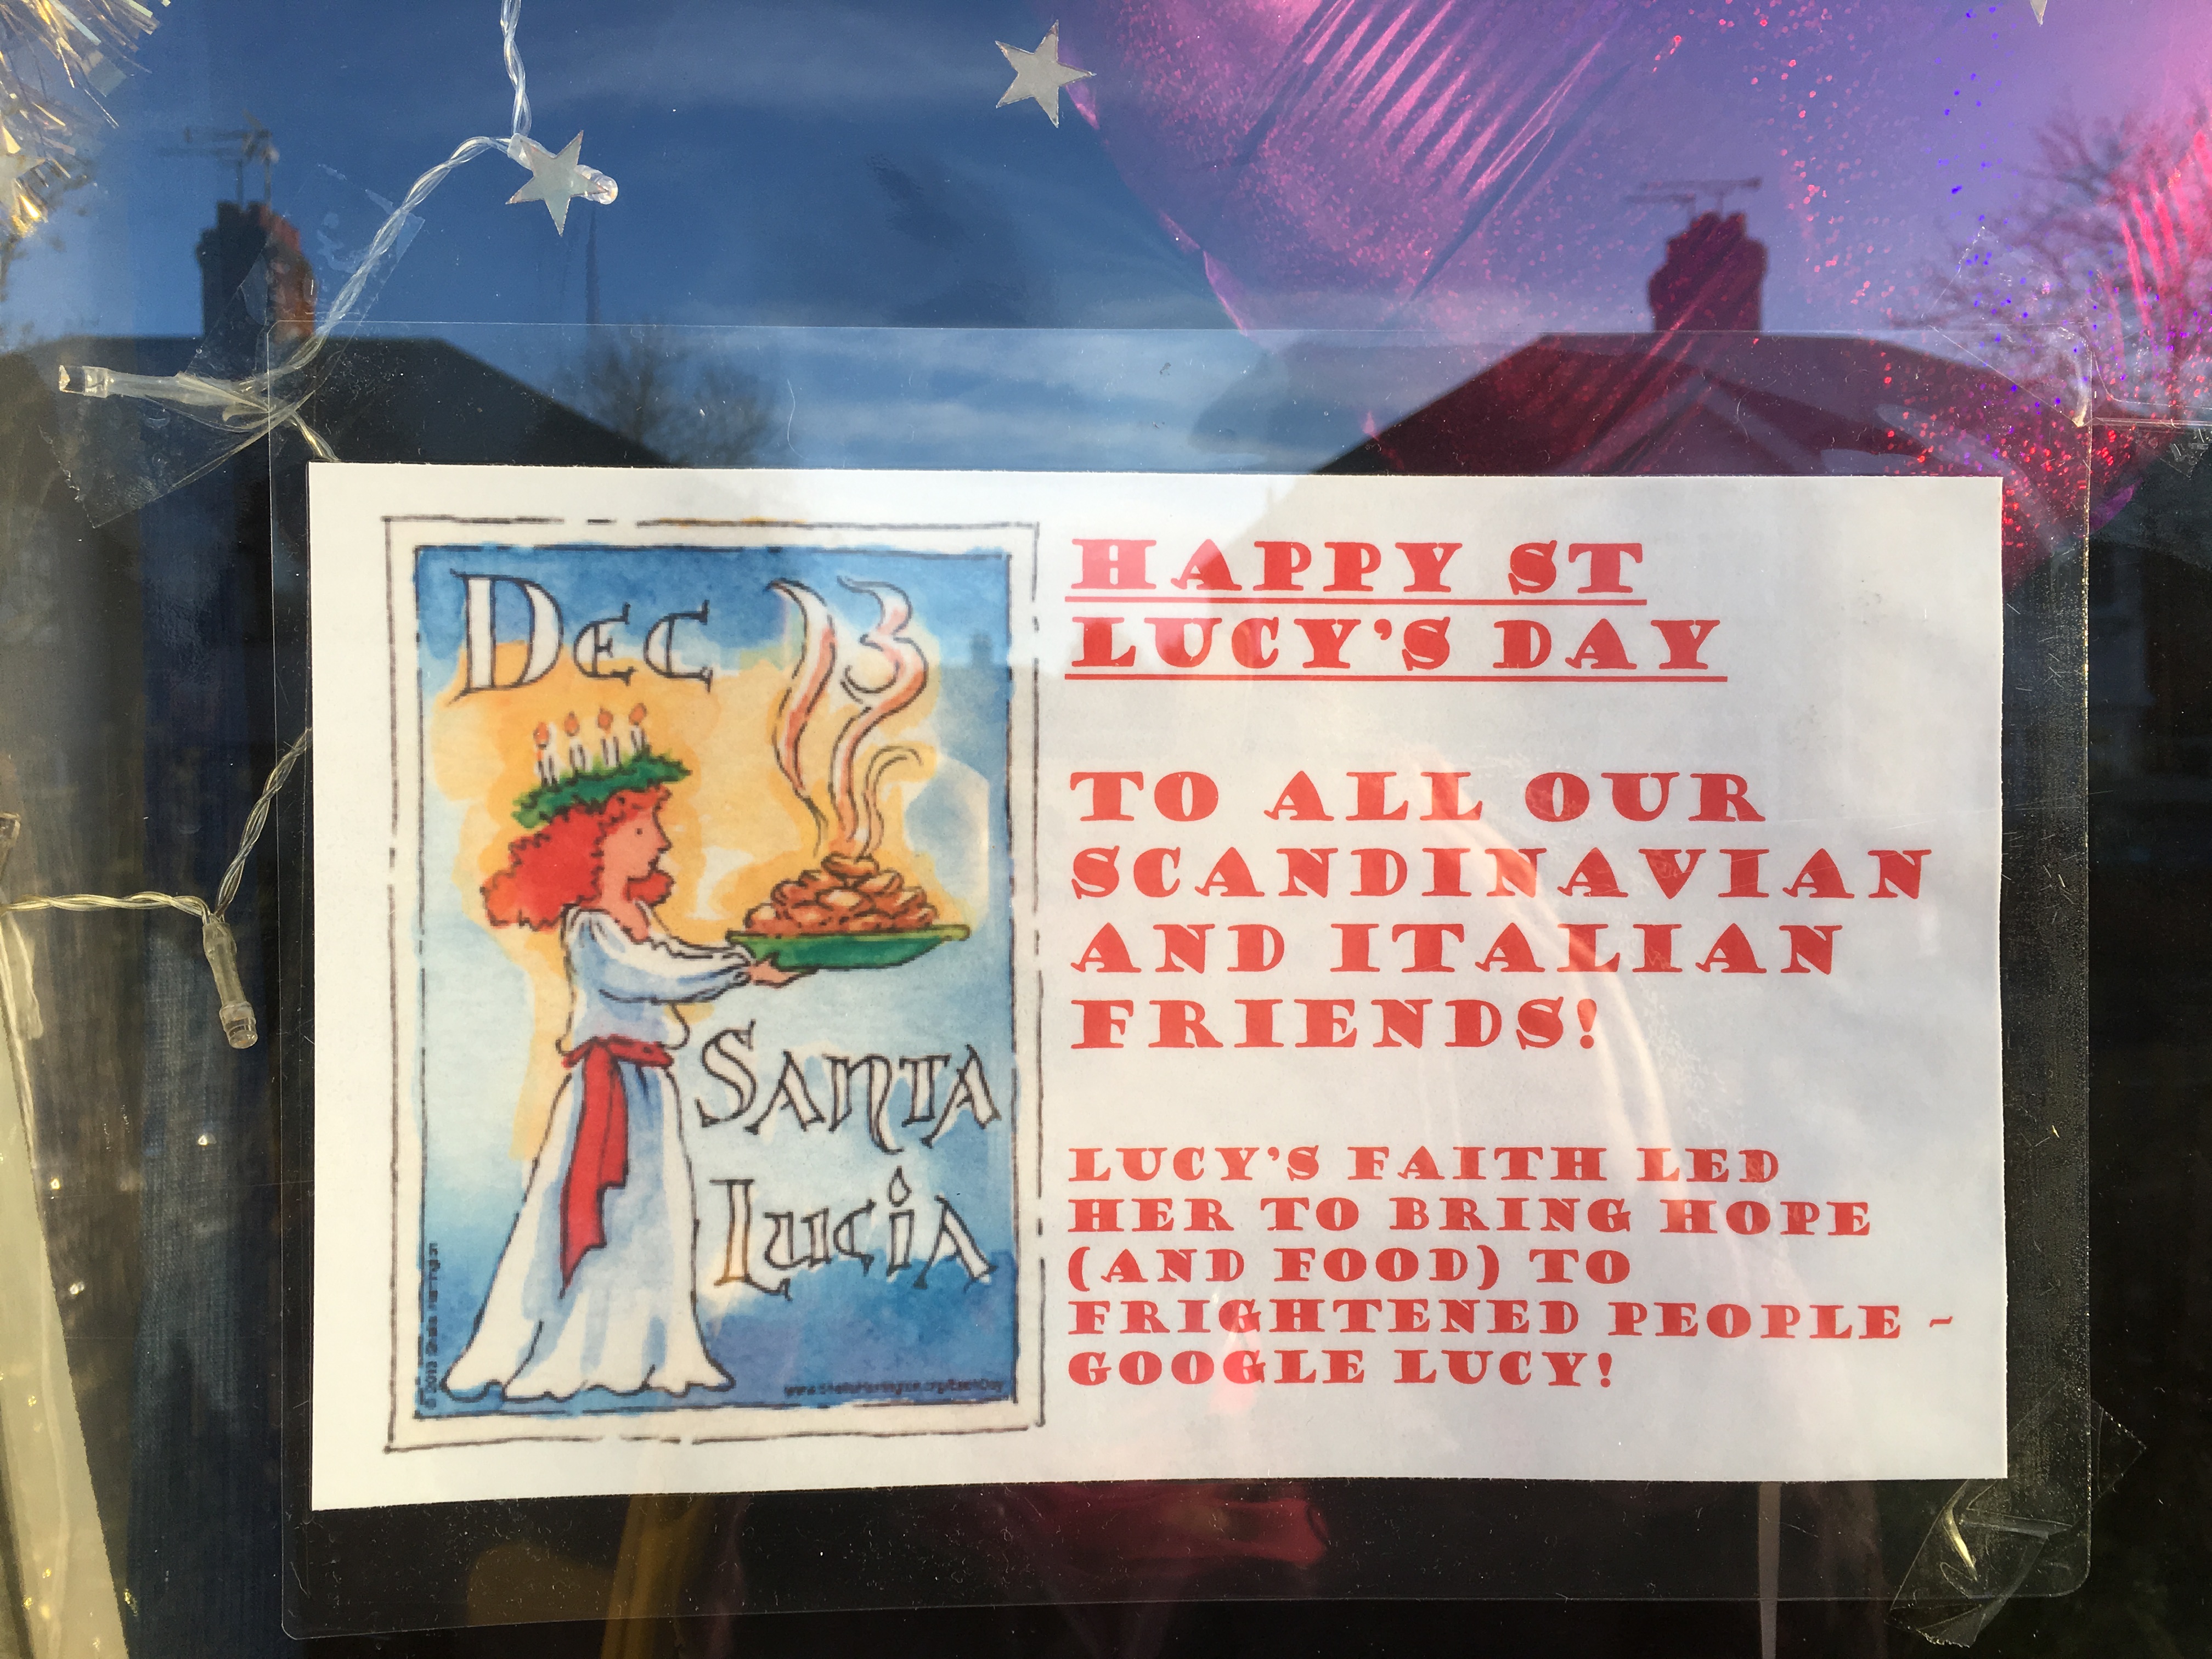 Dec 13
Santa
Lucia
© 2013 Sheila Harrington
HAPPY ST
LUCY'S DAY
TO ALL OUR
SCANDINAVIAN
AND ITALIAN
FRIENDS!
LUCY'S FAITH LED
HER TO BRING HOPE
(AND FOOD) TO
FRIGHTENED PEOPLE -
GOOGLE LUCY!